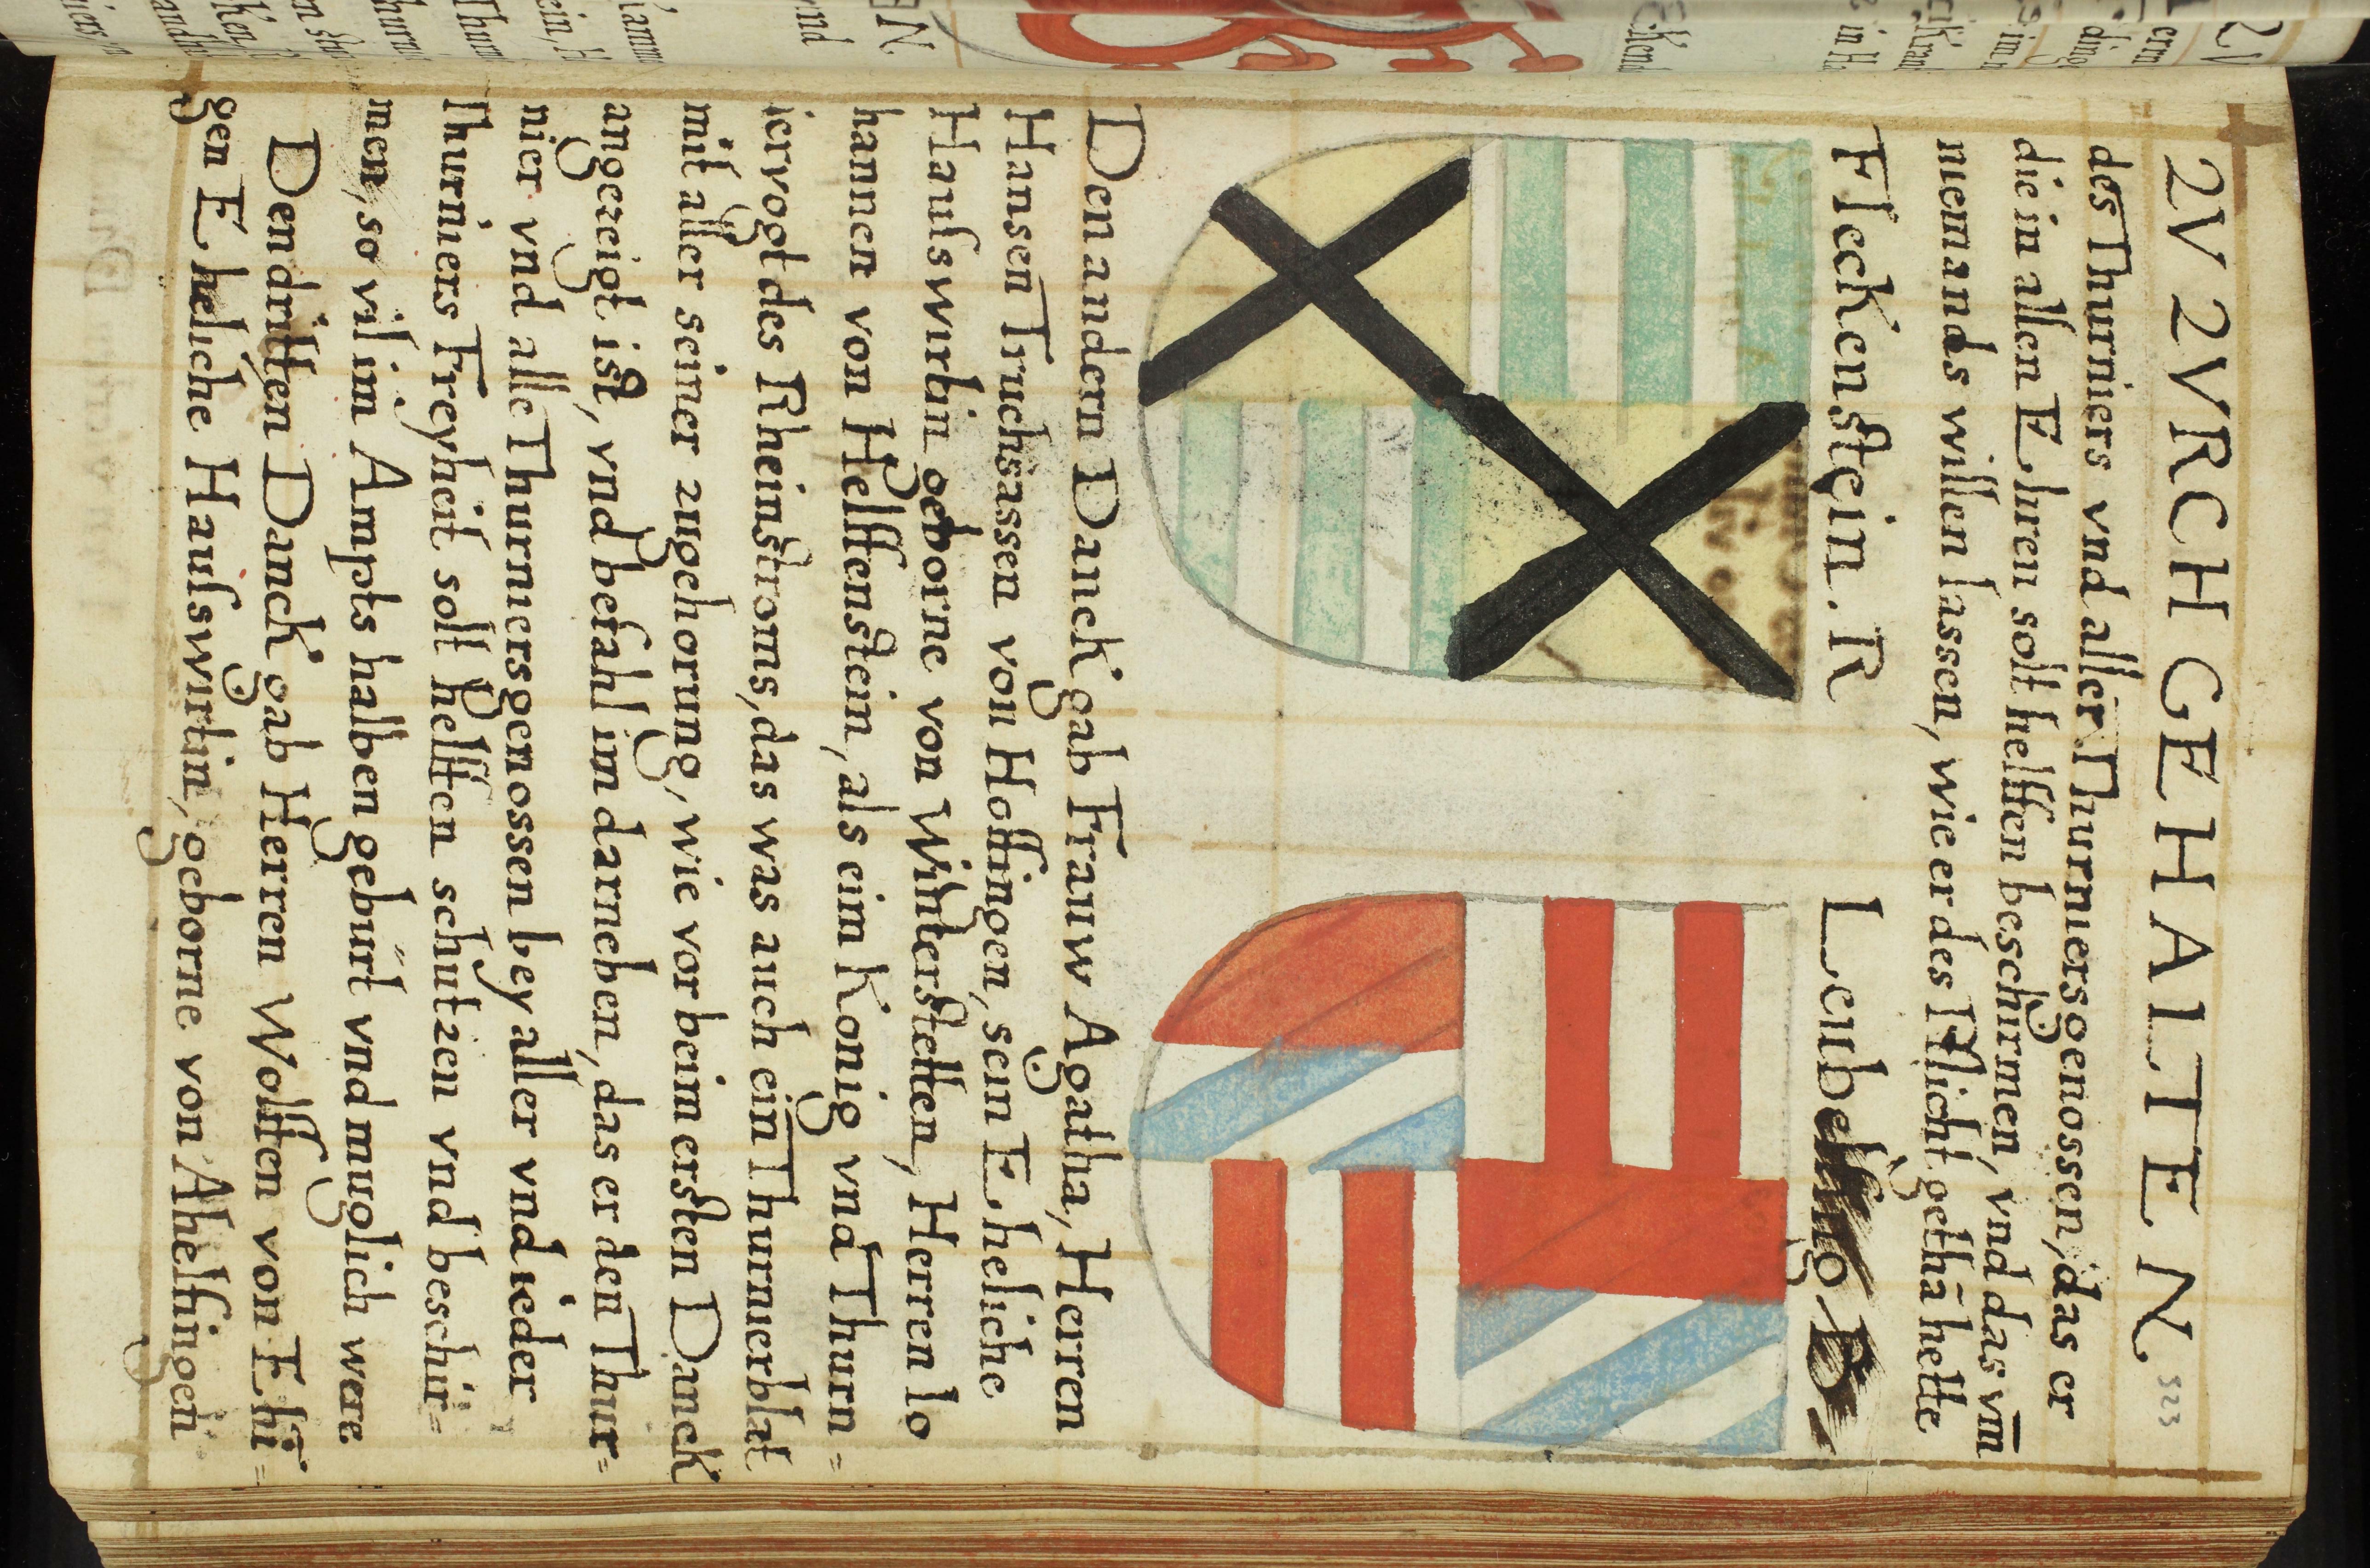 ZV ZVRCH GEHALTEN. 323
des Thurniers vnd aller Thurniersgenossen, das er
die in allen Ehren solt helffen beschirmen, vnd das vm̄
niemands willen lassen, wie er des Pflicht gethā hette
Fleckenstein. R
Leubelfing B
Den andern Danck gab Frauw Agatha, Herren
Hansen Truchsassen von Hoffingen, sein Eheliche
Hauswirtin geborne von Winterstetten, Herren Io
hannen von Helffenstein, als eim Konig vnd Thurn=
iervogt des Rheinstroms, das was auch ein Thurnierblat
mit aller seiner zugehorung, wie vor beim ersten Danck
angezeigt ist, vnd befahl im darneben, das er den Thur=
nier vnd alle Thurniersgenossen bey aller vnd ieder
Thurniers Freyheit solt helffen schutzen vnd beschir=
men, so vil im Ampts halben gebürt vnd muglich were
Den dritten Danck gab Herren Wolffen von Ehi=
gen Eheliche Hauswirtin, geborne von Ahelfingen